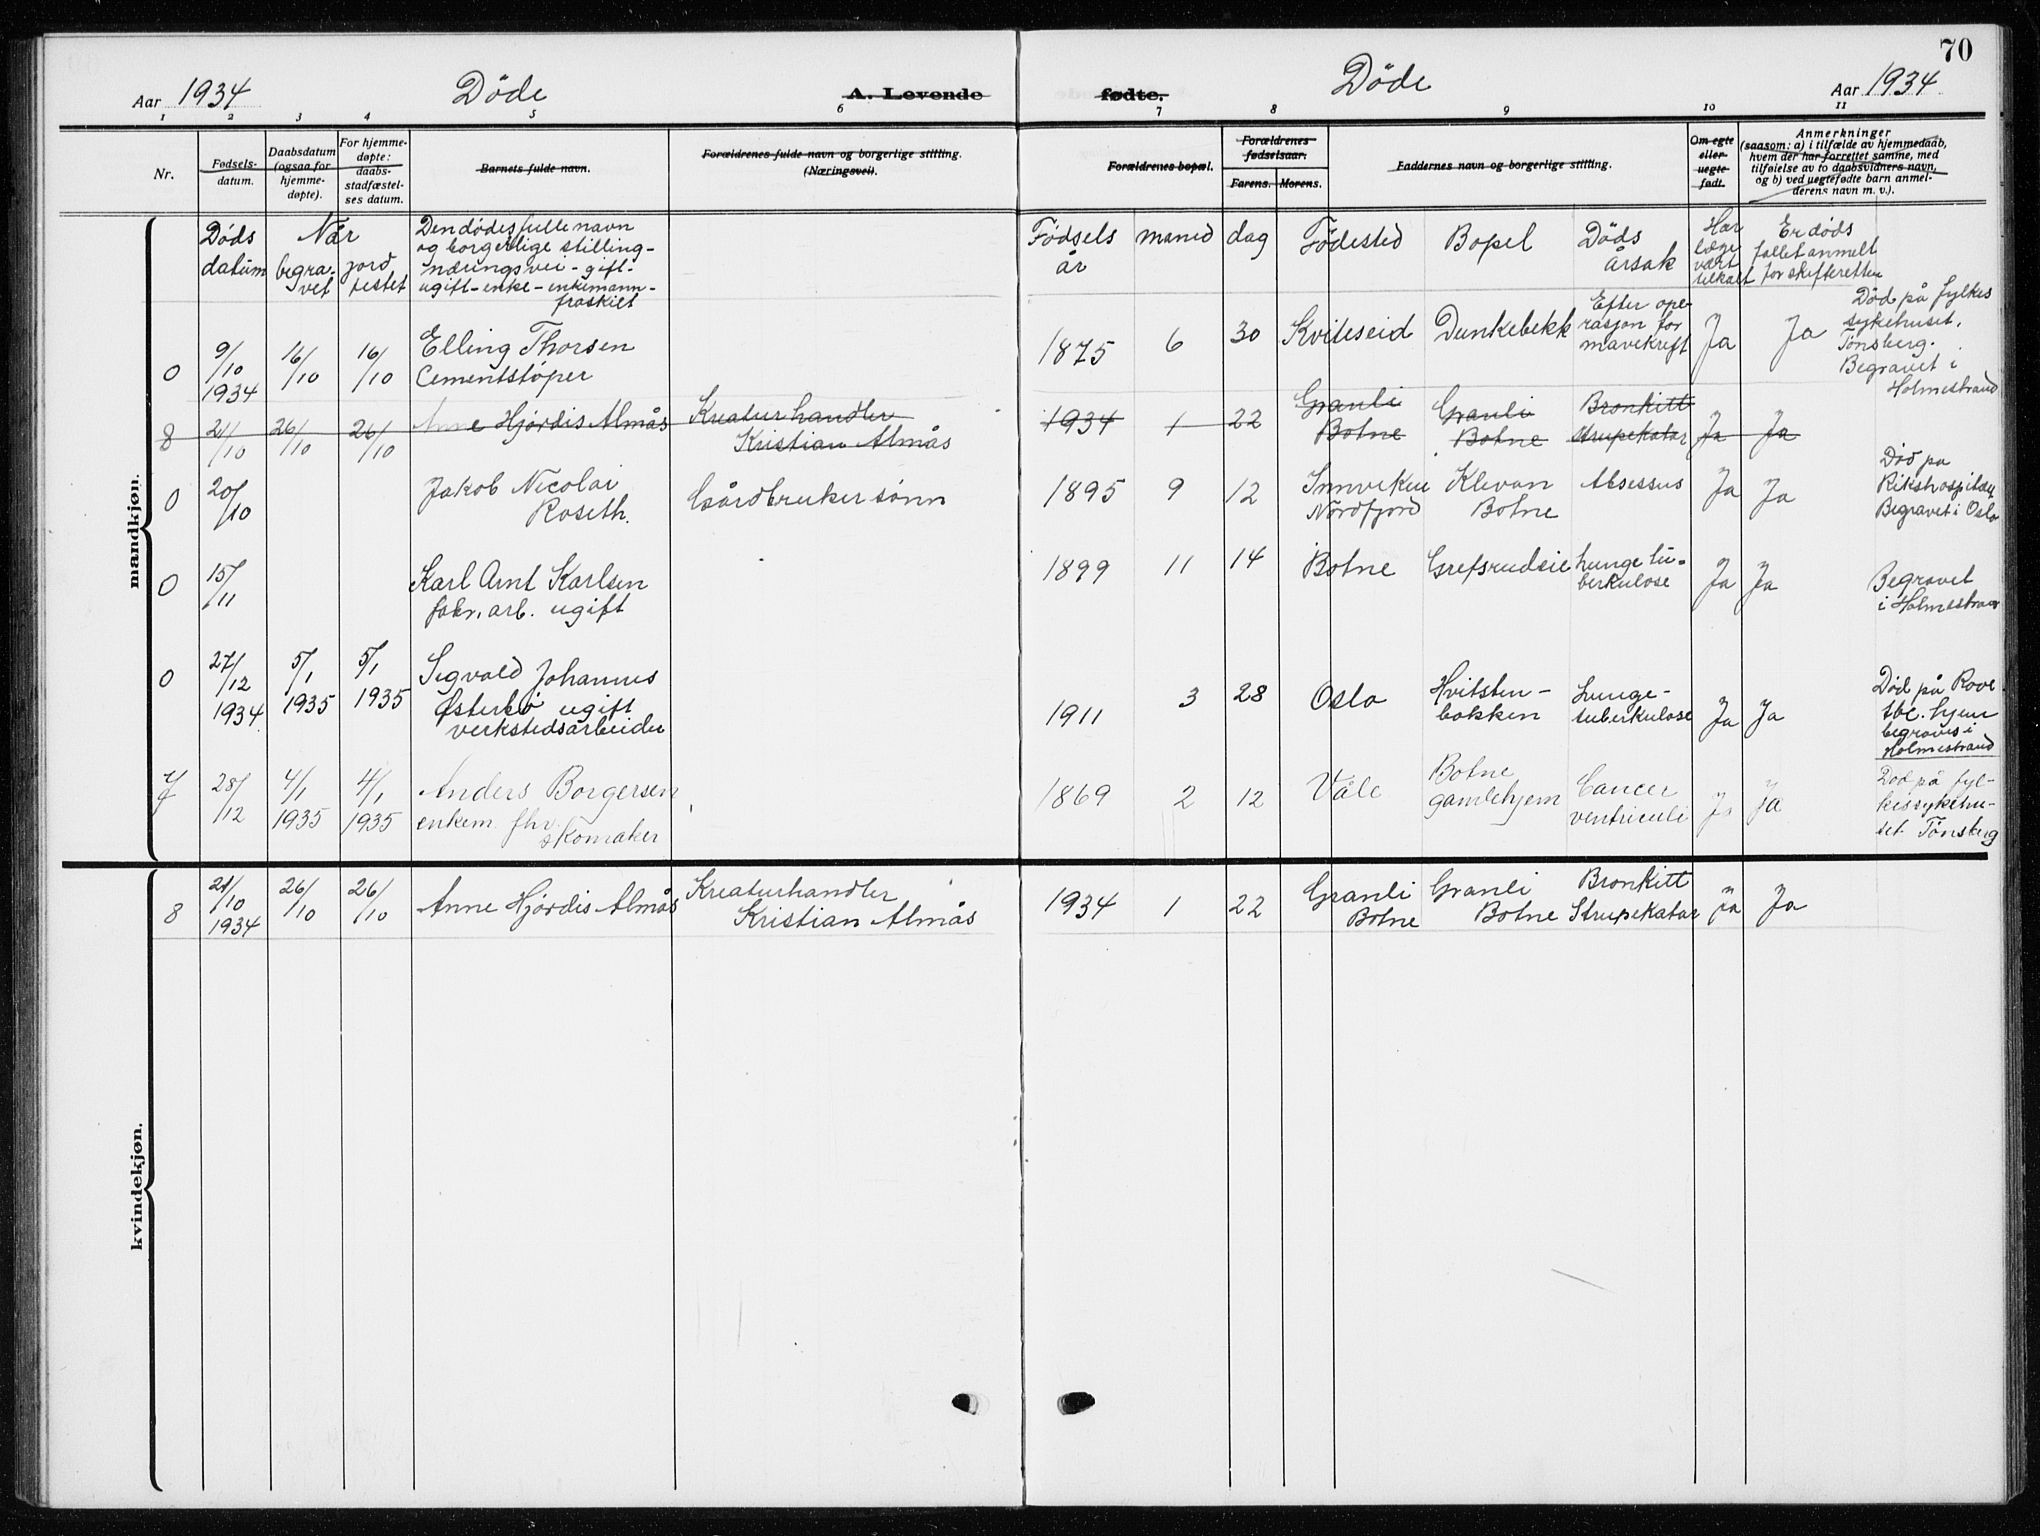 70
Aar 1934 Døde A. Levende fødte. Døde Aar 1934
1 2 3 4 5 6 7 8 9 10 11
Nr.
Fødsels-
datum.
Daabsdatum
(ogsaa for
hjemme-
døpte).
For hjemme-
døpte:
daabs-
stadfæstel-
ses datum.
Barnets fulde navn.
Forældrenes fulde navn og borgerlige stilling.
(Næringsvei).
Forældrenes bopæl.
Forældrenes
fødselsaar.
Farens. Morens.
Faddernes navn og borgerlige stilling.
Om egte
eller
uegte
født.
Anmerkninger
(saasom: a) i tilfælde av hjemmedaab,
hvem der har forrettet samme, med
tilføielse av to daabsvidners navn,
og b) ved uegtefødte barn anmel-
derens navn m. v.).
mandkjøn.
Døds
datum
Når
begra-
vet
jord
festet
Den dødes fulle navn
og borgerlige stilling -
næringsvei - gift -
ugift - enke - enkemann -
fraskilt
Fødsels
år
måned
dag
Fødested
Bopel
Døds
årsak
Har
læge
vært
tilkalt
Er døds
fallet anmelt
for skifteretten
0
9/10
1934
16/10
16/10
Elling Thorsen
Cementstøper
1875
6
30
Kviteseid
Dunkebekk
Efter ope-
rasjon for
mavekreft
Ja
Ja
Død på fylkes
sykehuset,
Tønsberg.
Begravet i
Holmestrand
8
21/10
26/10
26/10
Anne Hjørdis Almås
Kreaturhandler
Kristian Almås
1934
1
22
Granli
Botne
Granli
Botne
Bronkitt
Strupekatar
Ja
Ja
0
20/10
Jakob Nicolai
Roseth.
Gårdbruker sønn
1895
9
12
Innviken
Nordfjord
Klevan
Botne
Absessus
Ja
Ja
Død på
Rikshospitalet
Begravet i Oslo
0
15/11
Karl Arnt Karlsen
fabr. arb. ugift
1899
11
14
Botne
Grefsrudeie
Lunge tu-
berkulose
Ja
Ja
Begravet
i Holmestrand
0
27/12
1934
5/1
1935
5/1
1935
Sigvald Johannes
Østerbø ugift
verkstedsarbeider
1911
3
28
Oslo
Hvitsten-
bakken
Lunge-
tuberkulose
Ja
Ja
Død på Rove
tbc. hjem
begraves i
Holmestrand
7
28/12
4/1
1935
4/1
1935
Anders Borgersen
enkem. fhv.
skomaker
1869
2
12
Våle
Botne
gamlehjem
Cancer
ventriculi
Ja
Ja
Død på fyl-
kessykehu-
set Tønsberg
kvindekjøn.
8
21/10
1934
26/10
26/10
Anne Hjørdis Almås
Kreaturhandler
Kristian Almås
1934
1
22
Granli
Botne
Granli
Botne
Bronkitt
Strupekatar
Ja
Ja